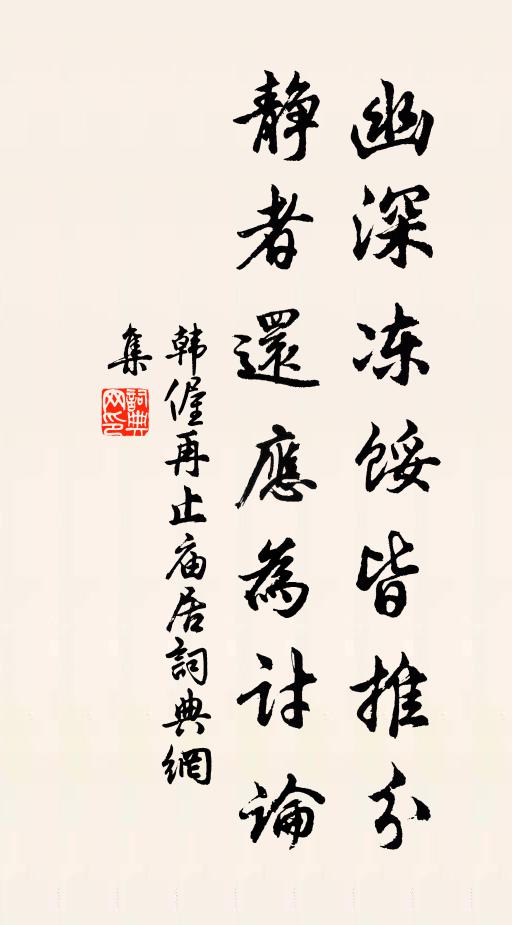 幽深冻馁皆推分
静者還應為討論
韩偓再止庙居詞典網
集
詞典
网印